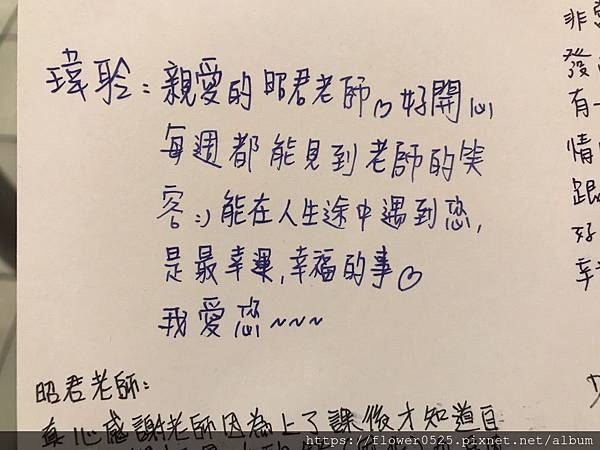 瑋聆：親愛的昭君老師♡好開心
每週都能見到老師的笑
容:)能在人生途中遇到您,
是最幸運,幸福的事♡
我愛您~~~
昭君老師：
真心感謝老師因為上了課後才知道自
非
發
有一
情
跟
好
幸
https://flower0525.pixnet.net/album